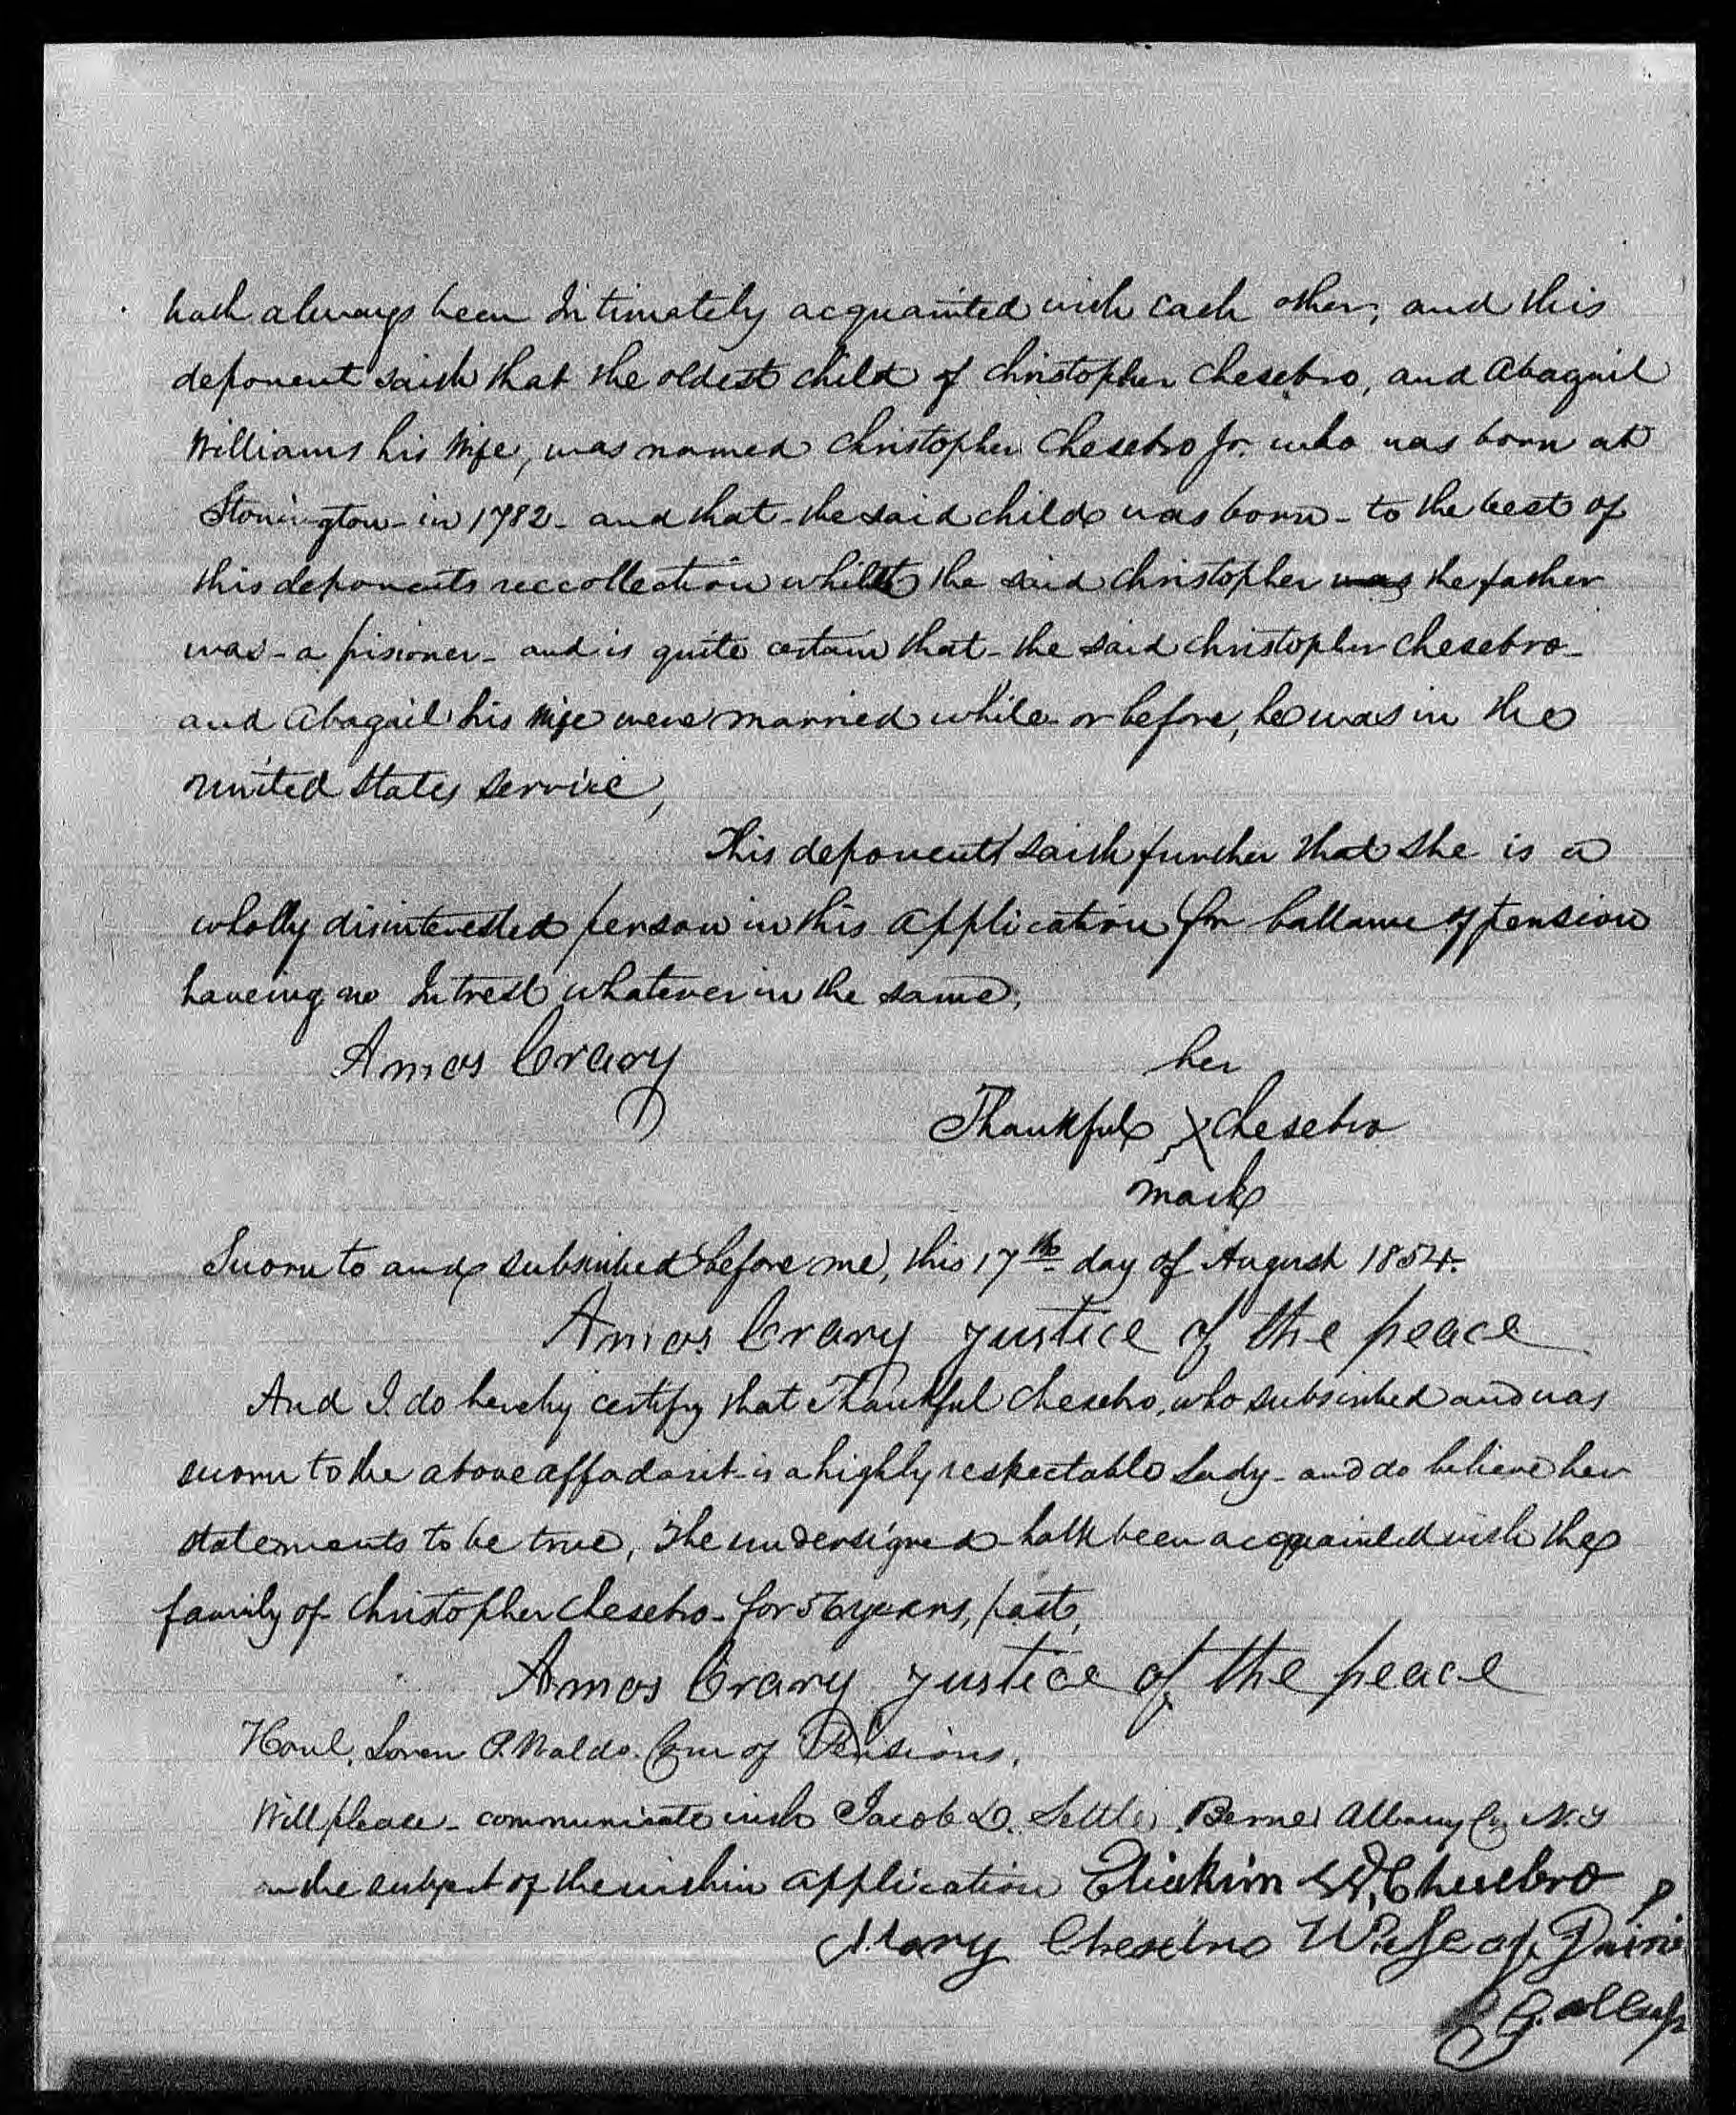 hath always been Intimately acquainted with each other; and this
deponent saith that the oldest child of christopher Chesebro, and Abagail
Williams his Wife, was named Christopher Chesebro Jr. who was born at
Stonington - in 1782 - and that - the said child was born - to the best of
this deponents reccollection whilst the said christopher was the father
was - a prisioner - and is quite certain that - the said christopher Chesebro -
and Abagail his Wife were married while or before, he was in the
united States Service,
This deponent saith further that she is a
wholly disinterested person in this application for ballance of pension
haveing no Intrest whatever in the same;
Amos Crary
her
Thankful X Chesebro
mark
Sworn to and subscribed before me, this 17th day of August 1854.
Amos Crary Justice of the peace
And I do hereby certify that Thankful Chesebro, who subscribed and was
sworn to the above affadavit - is a highly respectable Lady - and do believe her
statements to be true, The undersigned hath been acquainted with the
family of Christopher Chesebro - for 56 years, past,
Amos Crary Justice of the peace
Honl, Loren P. Waldo. Com of Pensions,
Will please - communicate with Jacob D. Settle, Berne Albany Co N.Y
on the subject of the within application Eliakim W. Chesebro
Mary Chesebro Wife of
Gallup